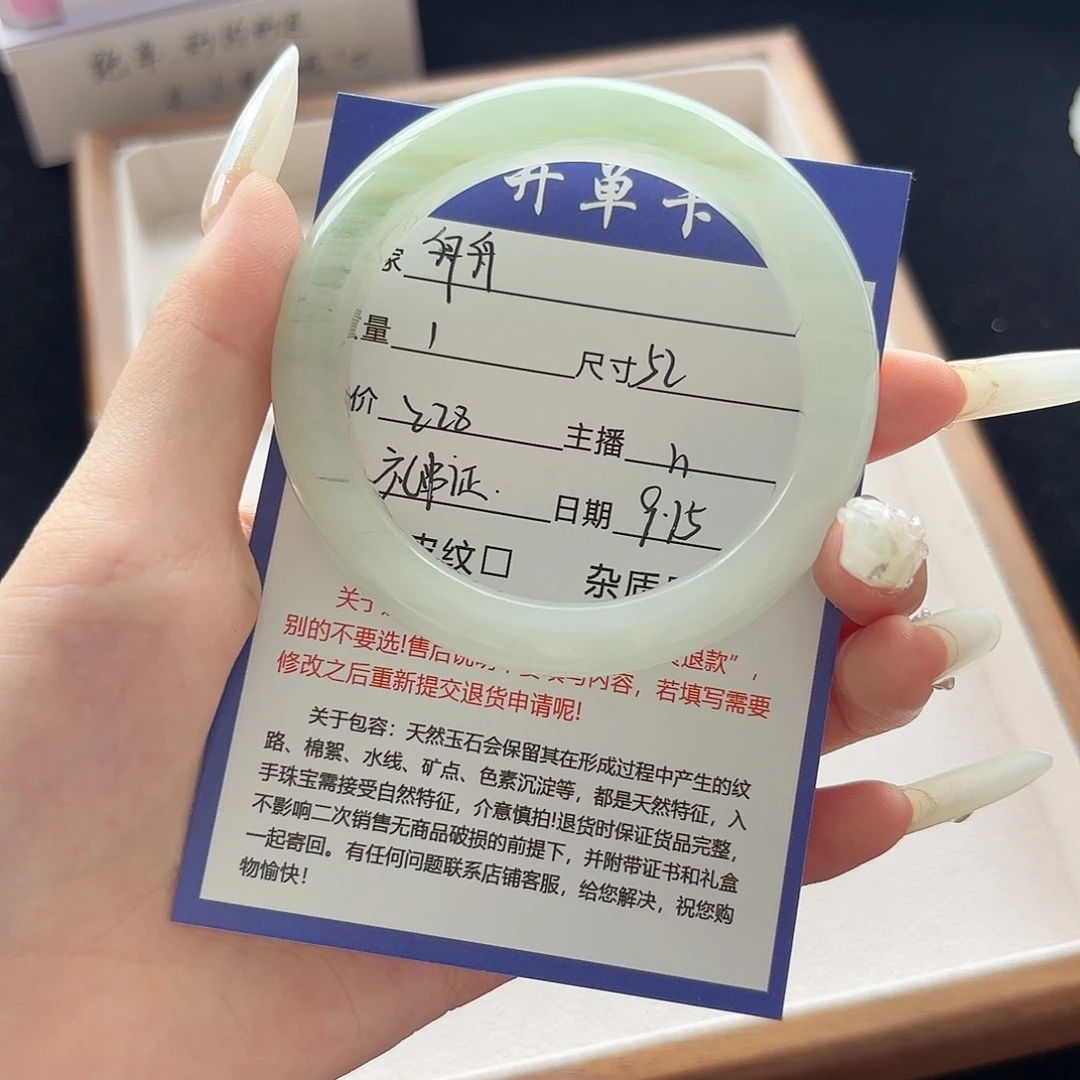 开单卡
家 丹丹
重量 1 尺寸 52
价 228 主播 h
礼 证. 日期 9.15
皮纹口 杂质
关于
别的不要选!售后说明不要填写内容，若填写需要
修改之后重新提交退货申请呢!
关于包容：天然玉石会保留其在形成过程中产生的纹
路、棉絮、水线、矿点、色素沉淀等，都是天然特征，入
手珠宝需接受自然特征，介意慎拍!退货时保证货品完整，
不影响二次销售无商品破损的前提下，并附带证书和礼盒
一起寄回。有任何问题联系店铺客服，给您解决，祝您购
物愉快!